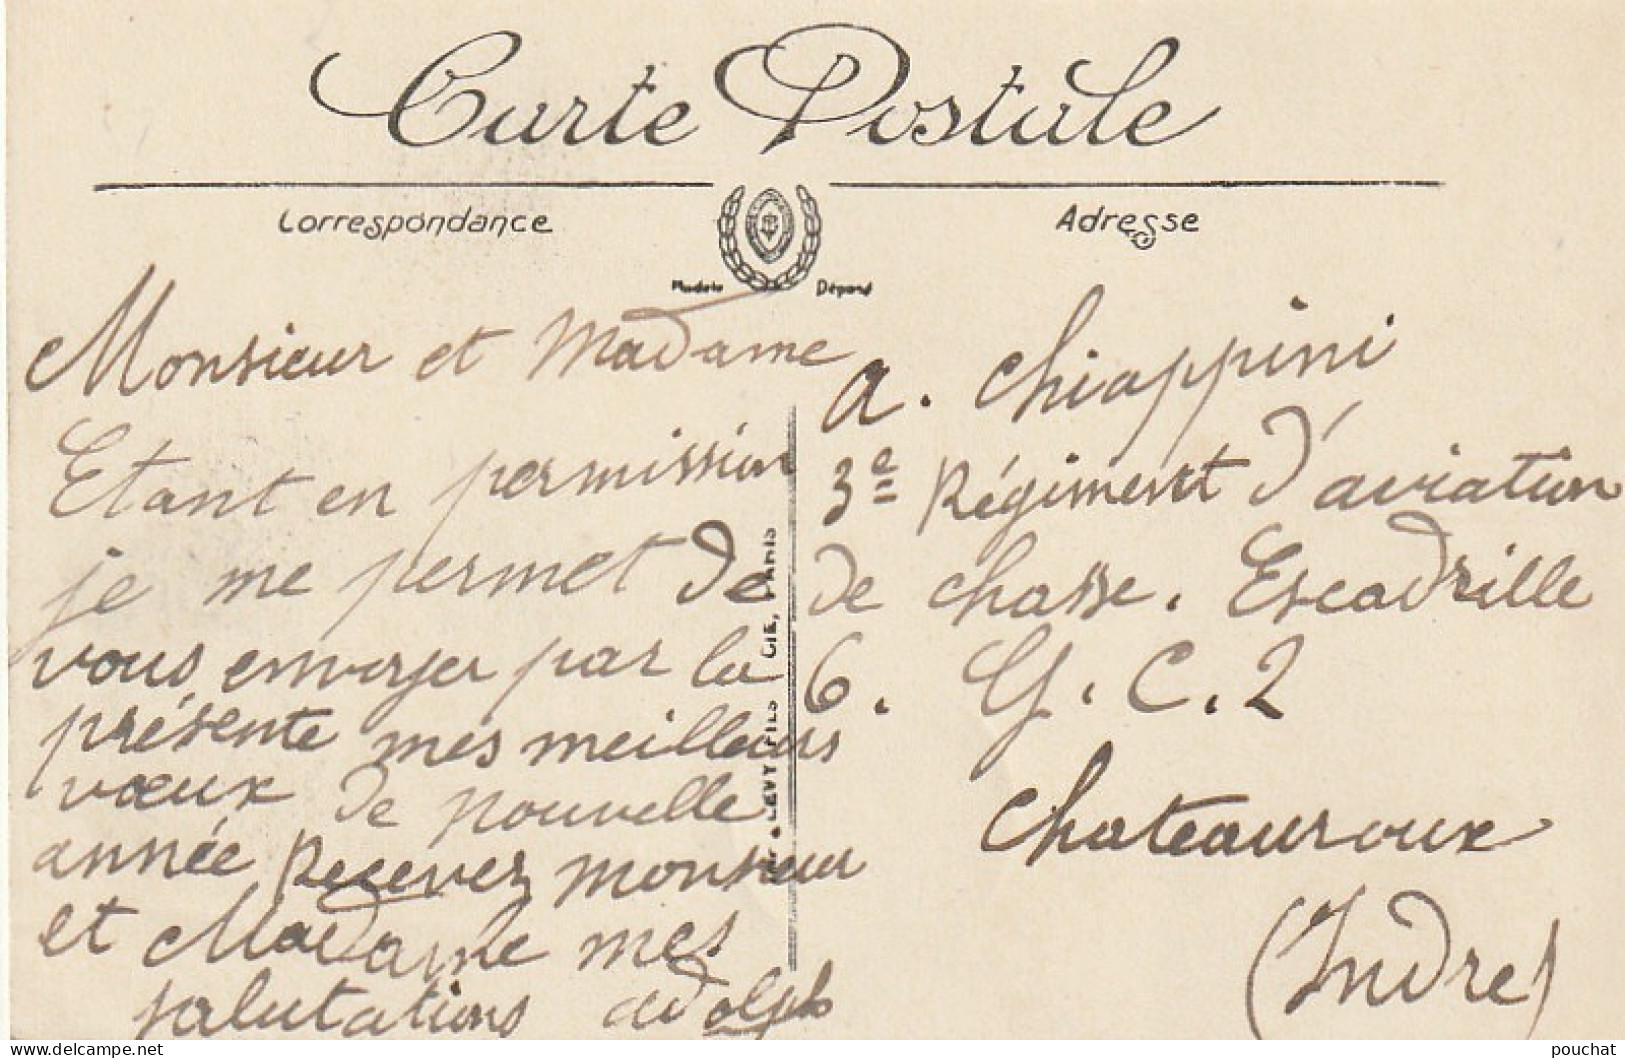 Carte Postale
Correspondance
Adresse
Modèle Déposé
Monsieur et Madame
Etant en permission
je me permet de
vous envoyer par la
présente mes meilleurs
vœux de nouvelle
année Recevez monsieur
et Madame mes
salutations adolph
LEVY FILS & CIE, PARIS
a. Chiappini
3e Régiment d'aviation
de chasse. Escadrille
6. G. C. 2
Chateauroux
(Indre)
delcampe.net
pouchat